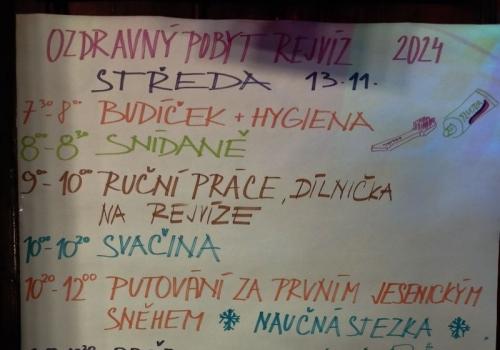 OZDRAVNÝ POBYT REJVÍZ 2024
STŘEDA 13.11.
7³⁰-8⁰⁰ BUDÍČEK + HYGIENA
8⁰⁰-8³⁰ SNÍDANĚ
9⁰⁰-10⁰⁰ RUČNÍ PRÁCE, DÍLNIČKA
NA REJVÍZE
10⁰⁰-10²⁰ SVAČINA
10²⁰-12⁰⁰ PUTOVÁNÍ ZA PRVNÍM JESENICKÝM
SNĚHEM ❄ NAUČNÁ STEZKA ❄